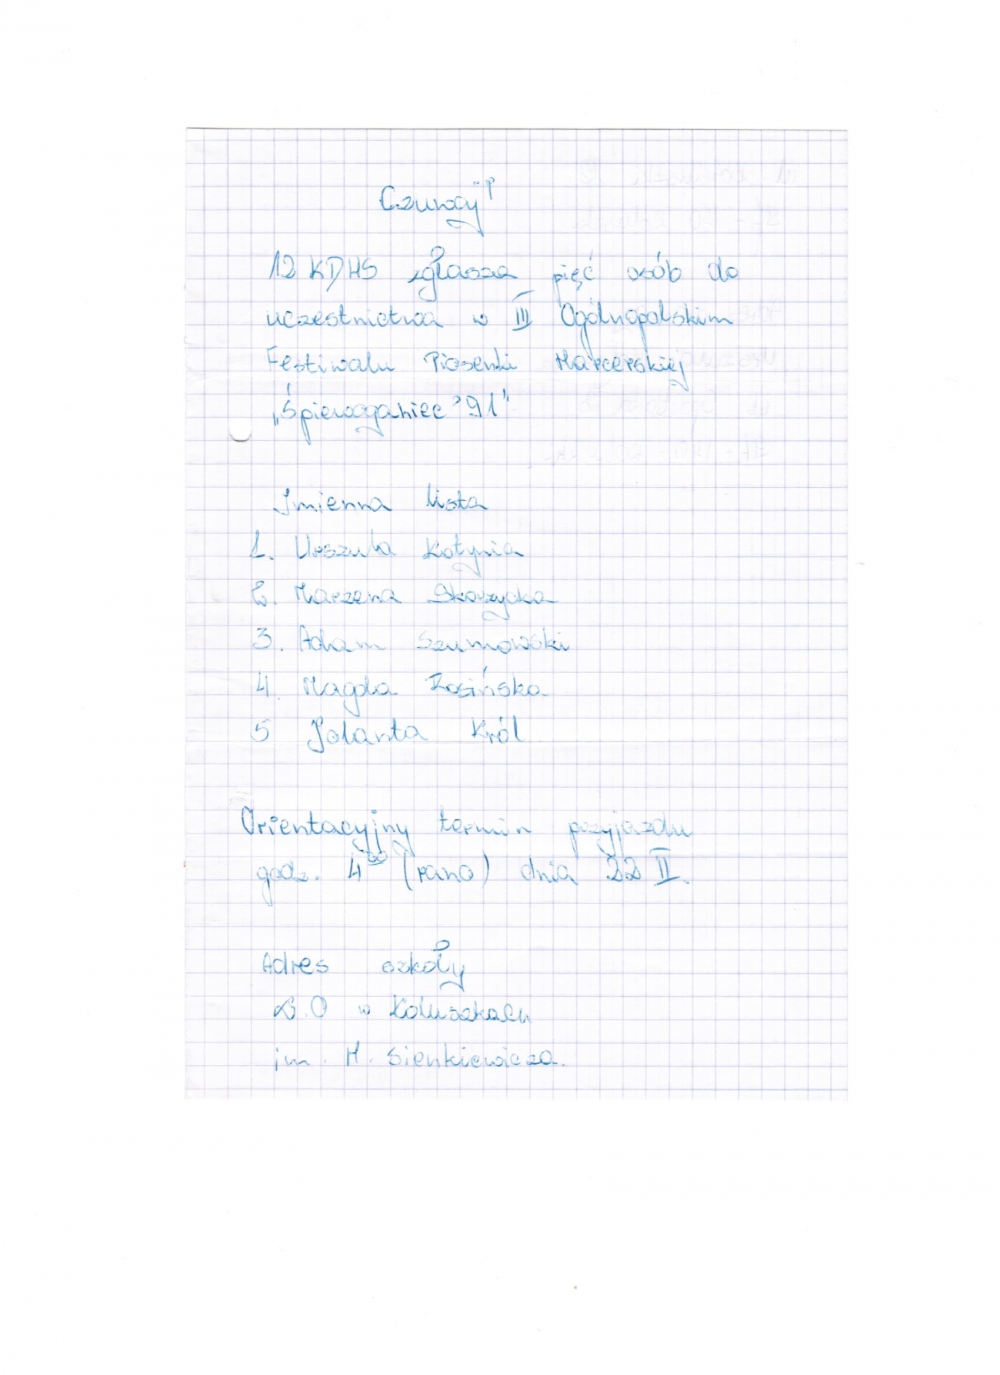 Czuwaj!
12 KDHS zgłasza pięć osób do
uczestnictwa w III Ogólnopolskim
Festiwalu Piosenki Harcerskiej
„Śpiewograniec '91"
Imienna lista
1. Urszula Kotynia
2. Marzena Skarzycka
3. Adam Szumowski
4. Magda Rosińska
5 Jolanta Król
Orientacyjny termin przyjazdu
godz. 4⁰⁰ (rano) dnia 22 II.
Adres szkoły
L.O w Koluszkach
im. H. Sienkiewicza.